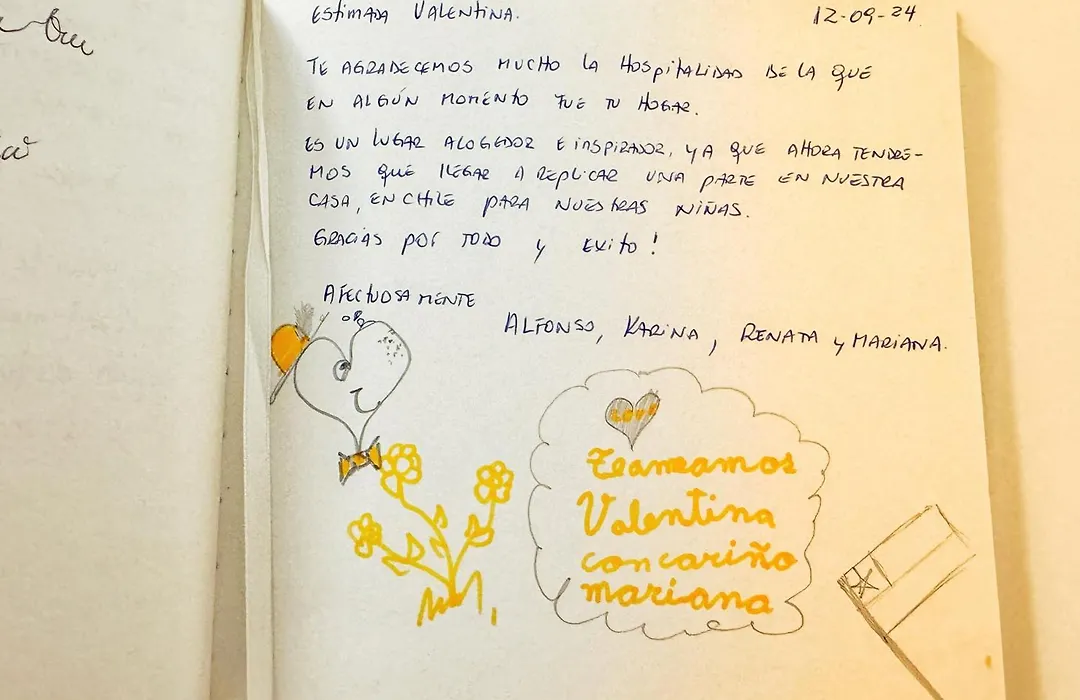 ESTIMADA VALENTINA. 12-09-24
TE AGRADECEMOS MUCHO LA HOSPITALIDAD DE LA QUE
EN ALGÚN MOMENTO FUE TU HOGAR.
ES UN LUGAR ACOGEDOR E INSPIRADOR, YA QUE AHORA TENDRE-
MOS QUE LLEGAR A REPLICAR UNA PARTE EN NUESTRA
CASA, EN CHILE PARA NUESTRAS NIÑAS.
GRACIAS POR TODO Y EXITO!
AFECTUOSAMENTE
ALFONSO, KARINA, RENATA Y MARIANA.
Love
teamamos
Valentina
con cariño
mariana